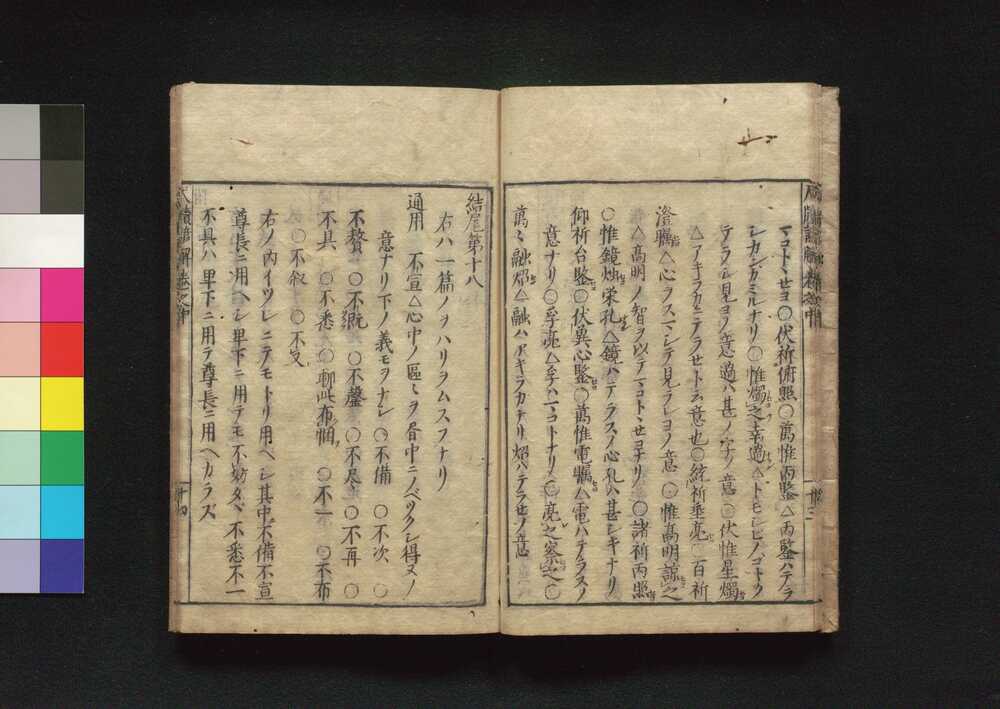 マコトヽセヨ○伏祈俯照○萬惟丙鑒△丙鑒ハテラ
シカンガミルナリ○惟燭之幸過△トモシビノゴトク
テラシ見ヨノ意過ハ甚ノ字ノ意○伏惟星燭
△アキラカニテラセト云意也○統祈垂亮○百祈
澄矚△心ヲスマシテ見ラレヨノ意○惟髙明諒之
△髙明ノ智ヲ以テマコトヽセヨナリ○諸祈丙照
○惟鏡烛栄孔△鏡ハテラスノ心孔ハ甚シキナリ
仰祈台鑒○伏兾心鑒○萬惟電矚△電ハテラスノ
意ナリ○孚亮△孚ハマコトナリ○亮之察之○
萬〻融焔△融ハアキラカナリ焔ハテラセノ意
結尾第十八
右ハ一篇ノヲハリヲムスフナリ
通用 不宣△心中ノ區〻ヲ昏中ニノベツクシ得ヌノ
意ナリ下ノ義モヲナシ○不備 ○不次 ○
不贅 ○不溉 ○不罄 ○不尽 ○不再 ○
不具 ○不悉 ○聊此布悃 ○不一 ○不布
○不叙 ○不文
右ノ内イツレニテモトリ用ヘシ其中不備不宣
尊長ニ用ヘシ卑下ニ用テモ不妨タヾ不悉不一
不具ハ卑下ニ用テ尊長ニ用ヘカラズ
十四